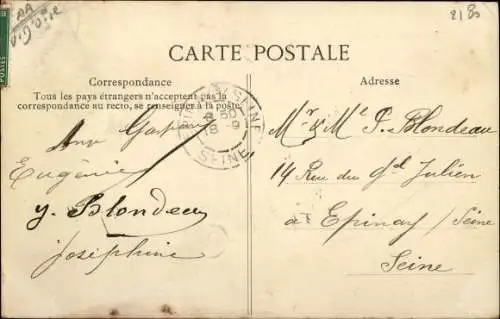 2180
CARTE POSTALE
Correspondance
Tous les pays étrangers n'acceptent pas la
correspondance au recto, se renseigner à la poste.
Eugénie
y. Blondeau
joséphine
SEINE
Adresse
Mr & Me P. Blondeau
14 Rue du Gal Julien
à Epinay / Seine
Seine